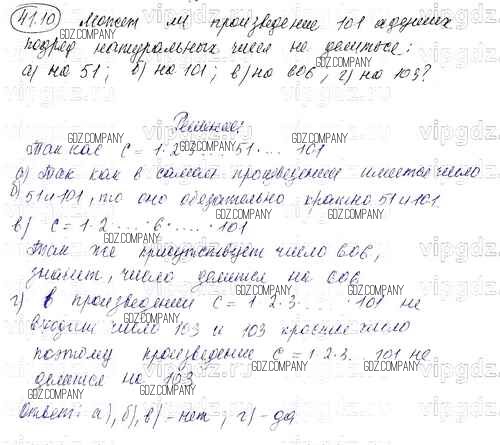 41.10 Может ли произведение 101 идущих
подряд натуральных чисел не делиться:
а) на 51; б) на 101; в) на 606; г) на 103?
Решение:
Так как c = 1·2·3 ... 51· ... 101
а) Так как в самом произведении имеется число
б) 51 и 101, то оно обязательно кратно 51 и 101.
в) c = 1·2· ... ·6· ... ·101
Там же присутствует число 606,
значит, число делится на 606
г) в произведении c = 1·2·3· ... ·101 не
входит число 103 и 103 простое число
поэтому произведение c = 1·2·3... 101 не
делится на 103
Ответ: а), б), в) - нет; г) - да